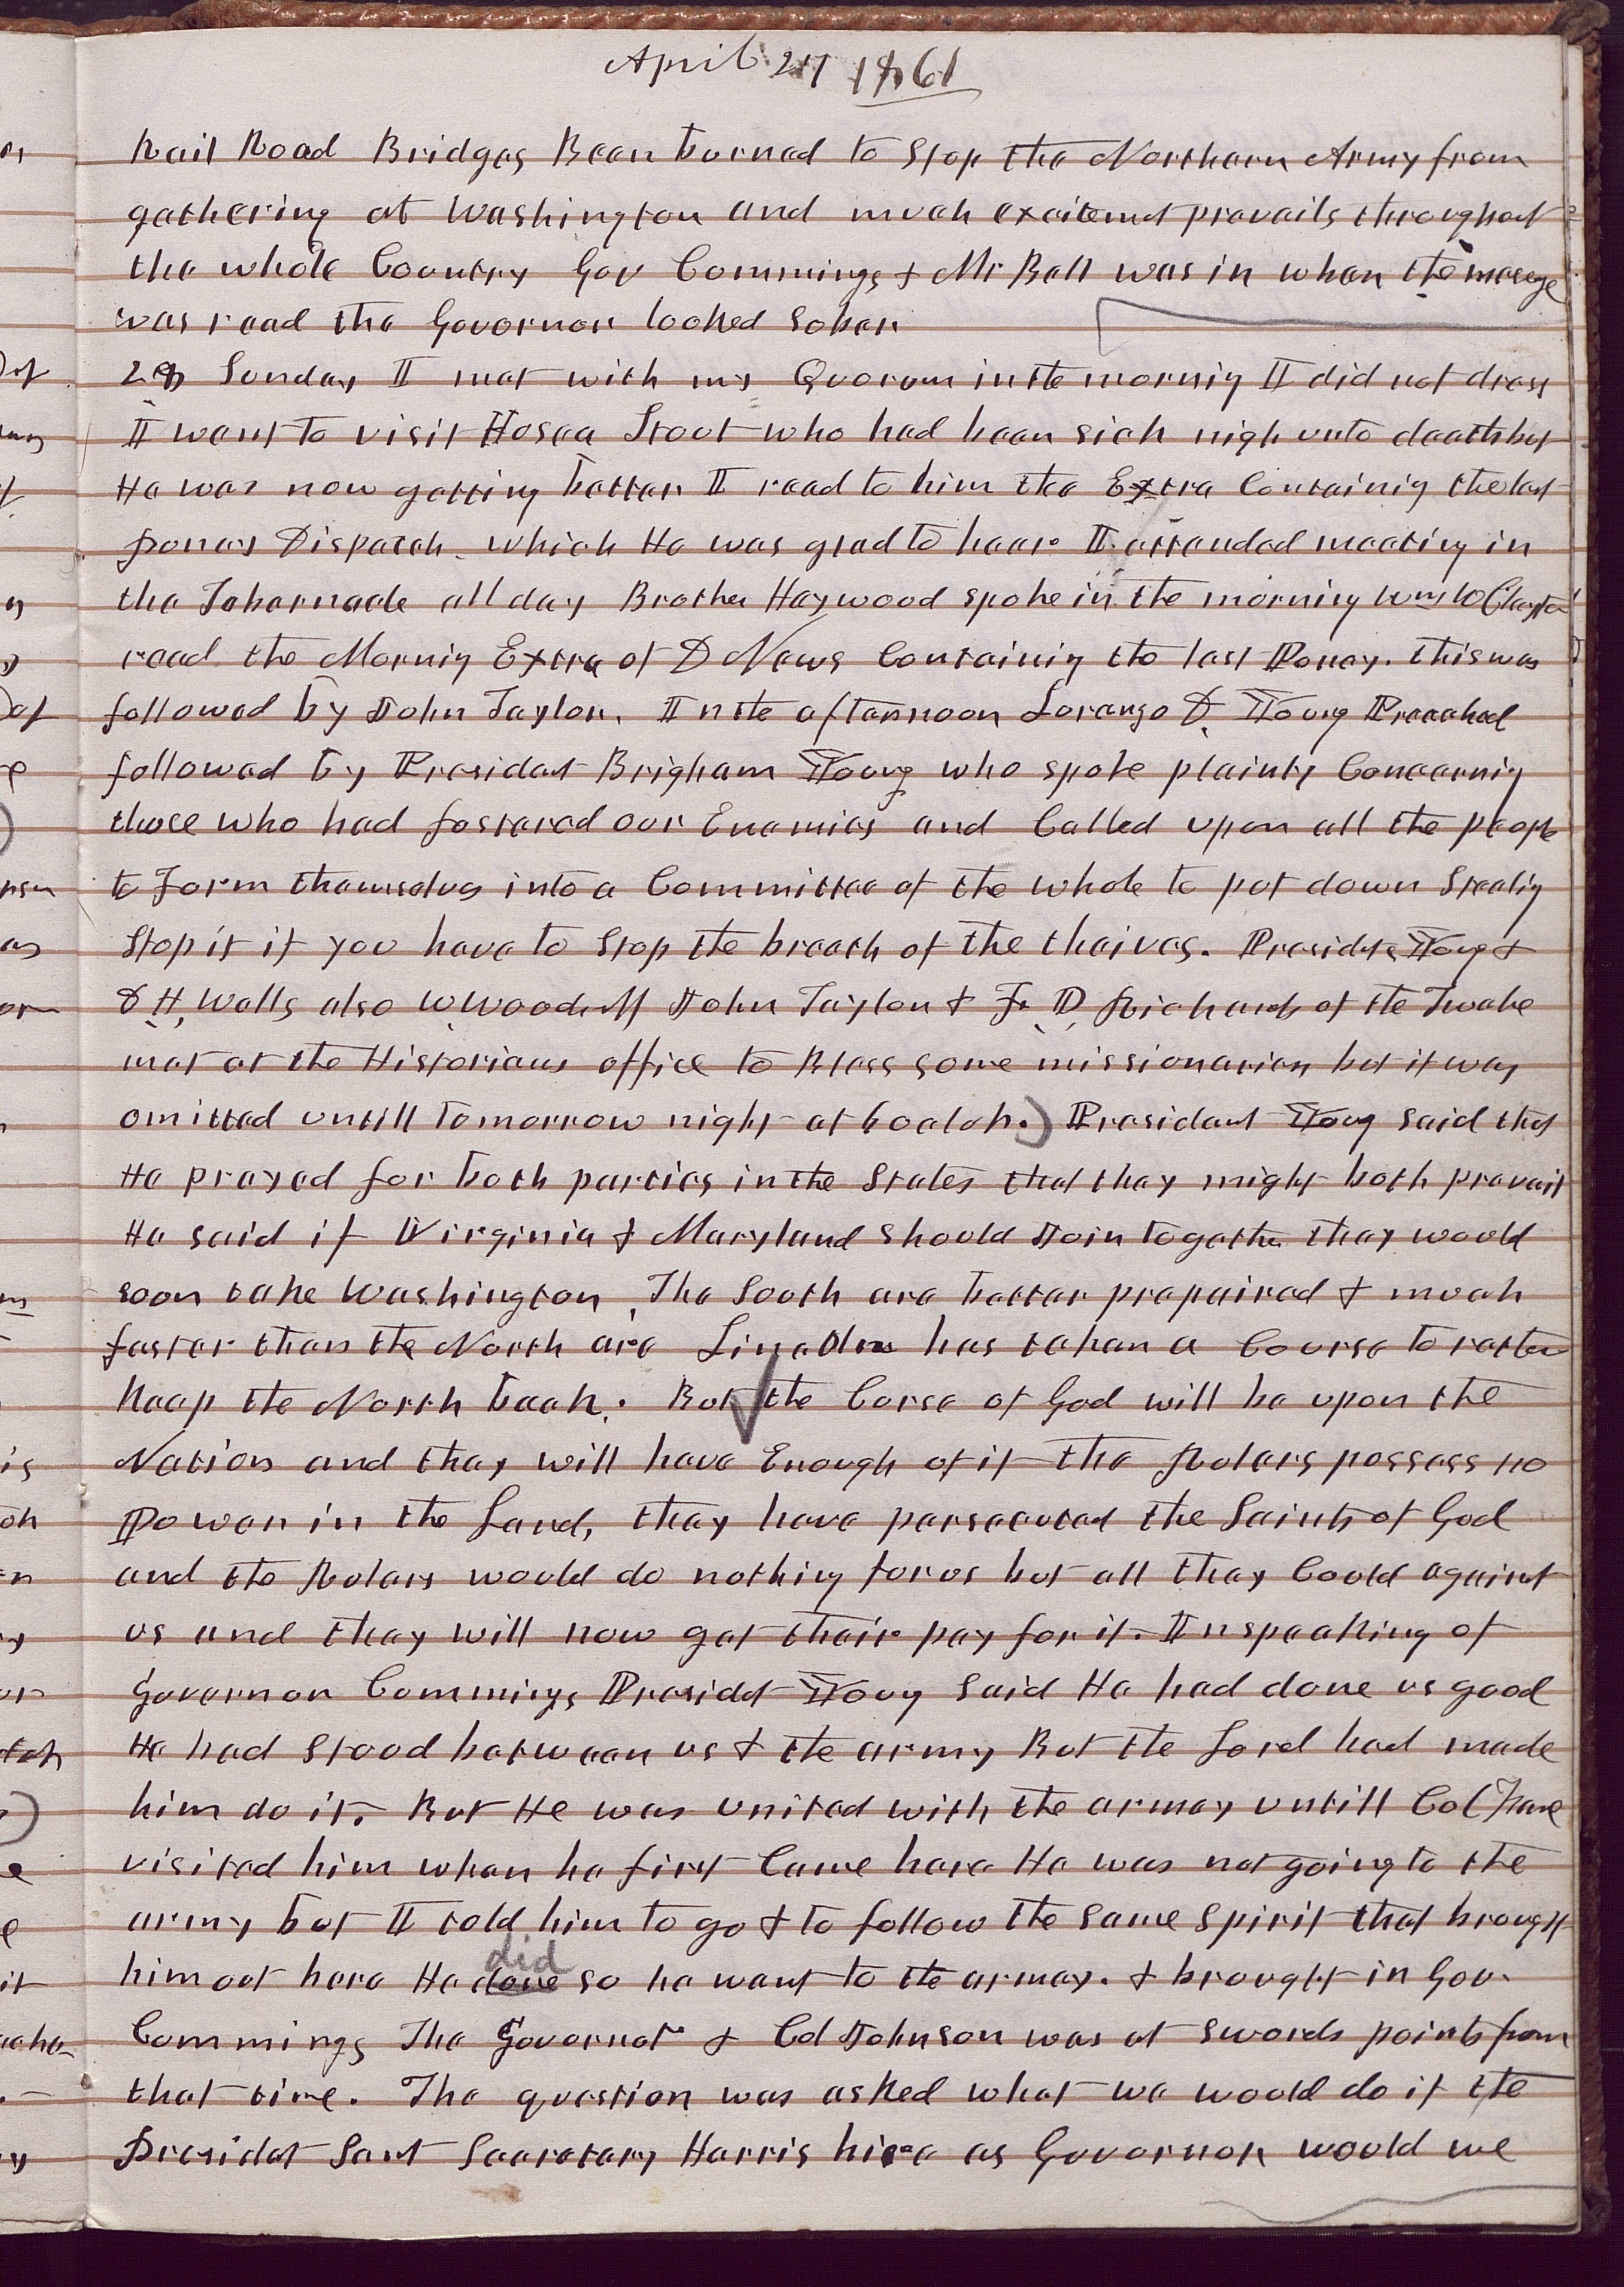 April 27 1861
Rail Road Bridges Been burned to stop the Northern Army from
gathering at Washington and much excitemet prevails throughout
the whole Country Gov Cummings & Mr Bell was in when the messege
was read the Governor looked sober
28 Sunday I met with my Quorum in the mornig I did not dress
I went to visit Hosea Stout who had been sick nigh unto death but
He was now getting better I read to him the Extra Containig the last
poney Dispatch which He was glad to hear I attended meeting in
the Tabernacle all day Brother Haywood spoke in the morning Wm W Clayton
read the Mornig Extra of D News Containig the last Poney. this was
followed by John Taylor. In the afternoon Lorenzo D. Young Preached
followed by Presidet Brigham Young who spoke plainly Concernig
those who had fostered our Enemies and Called upon all the people
to Form themselves into a Committee of the whole to put down Stealig
stop it if you have to stop the breath of the theives. Presidets Young &
D H, Wells also W Woodruff John Taylor & F. D, Richards of the Twelve
met at the Historians office to Bless some missionaries but it was
omitted untill tomorrow night at 6 oclok.) President Young said that
He prayed for both parties in the States that they might both prevail
He said if Virginia & Maryland should Join together they would
soon take Washington, The South are better prepaired & much
faster than the North are Lincoln has taken a Course to rather
Keep the North back. But the Curse of God will be upon the
Nation and they will have Enough of it the Rulers possess no
Power in the Land, they have persecuted the Saints of God
and the Rulers would do nothing for us but all they Could against
us and they will now get their pay for it. In speaking of
Governor Cummings Presidet Young said He had done us good
He had stood between us & the army But the Lord had made
him do it. But He was united with the armey untill Col Kane
visited him when he first Came here He was not going to the
army but I told him to go & to follow the same spirit that brought
did
him out here He done so he went to the armey. & brought in Gov.
Cummings The Governor & Col Johnson was at swords points from
that time. The question was asked what we would do if the
Presidet Sent Secretary Harris here as Governor would we